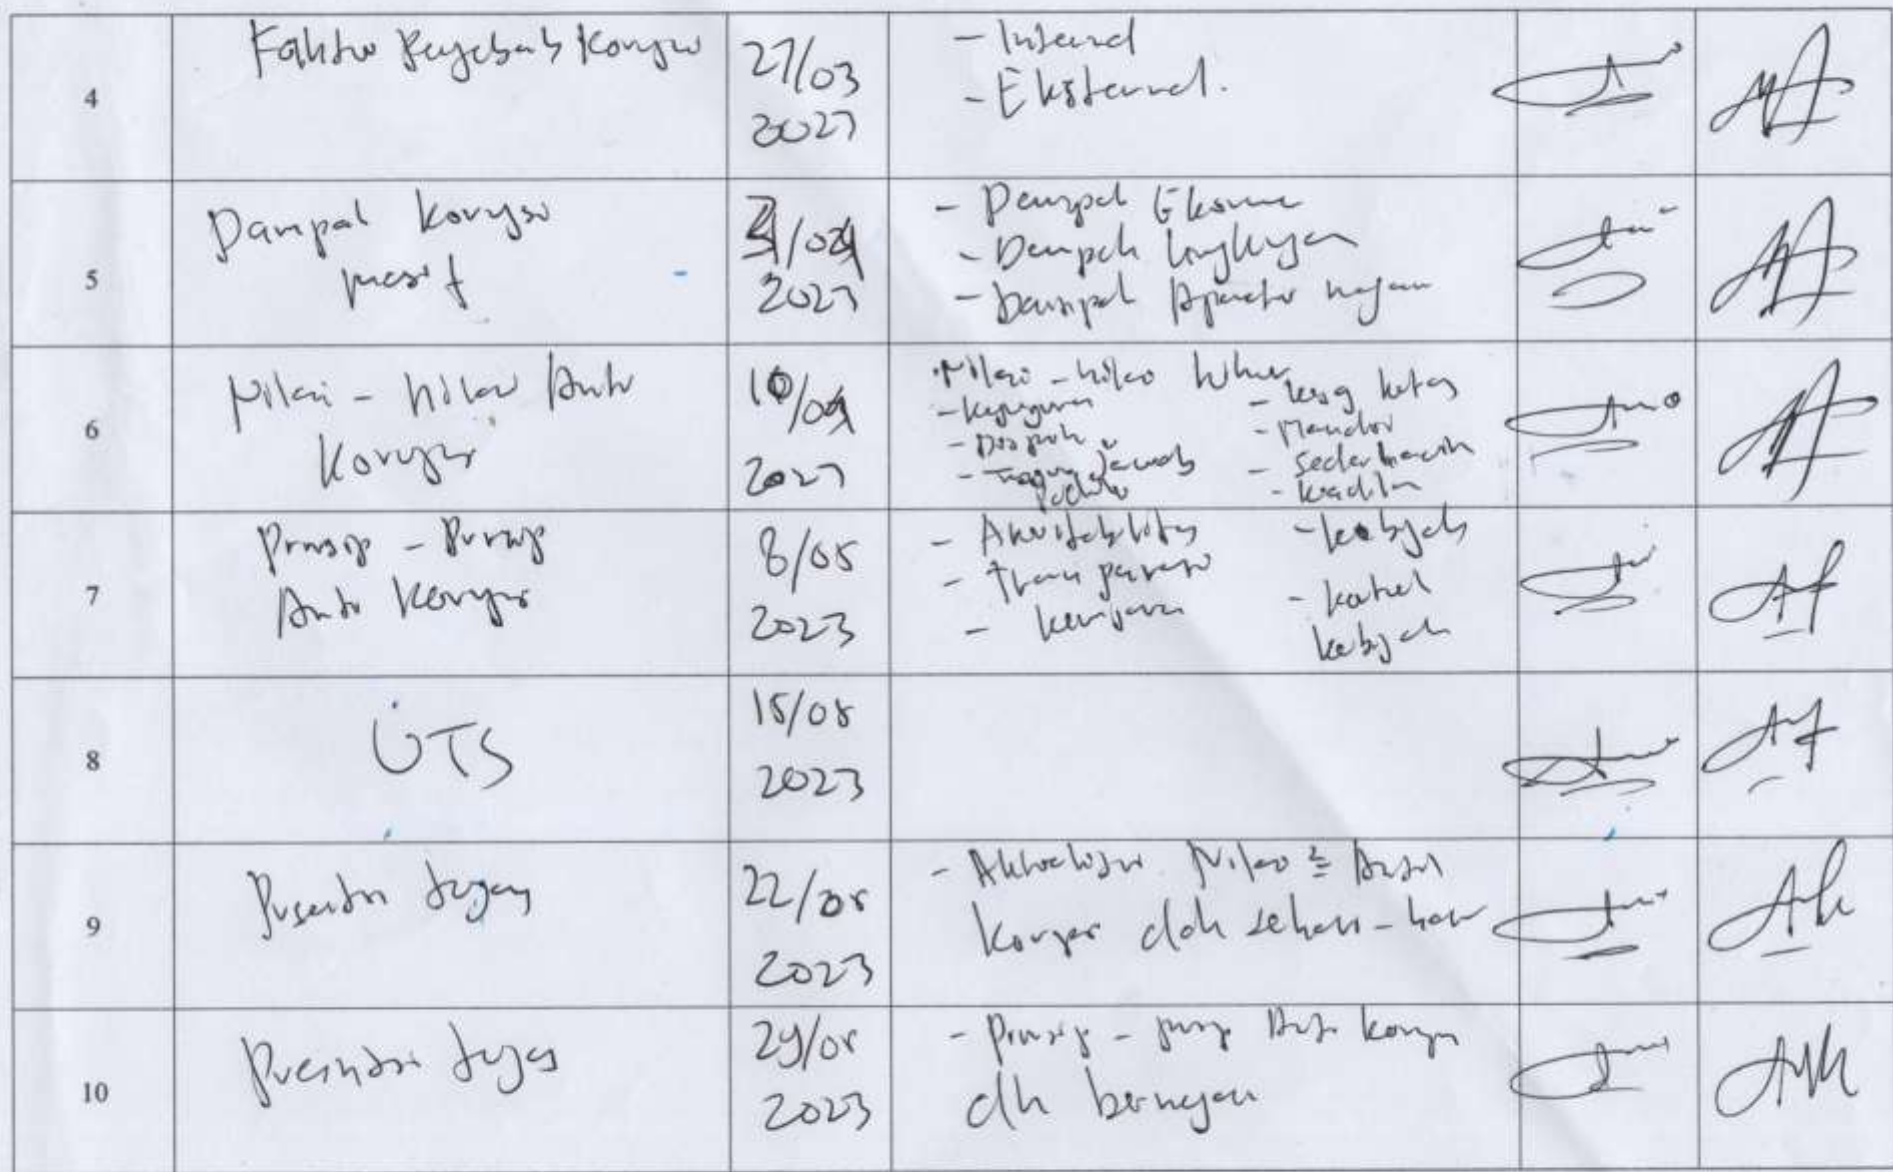 4
Faktor Penyebab Korupsi
27/03
2023
- Internal
- Eksternal.
5
Dampak Korupsi
masif
2023
- Dampak Ekonomi
- Dampak lingkungan
- Dampak Aparatur negara
6
Nilai - nilai Anti
Korupsi
10/04
2023
- Kerja keras
- Mandiri
- Disiplin
- Tanggung Jawab
- Sederhana
- Keadilan
7
Prinsip - Prinsip
Anti Korupsi
8/05
2023
- Akuntabilitas
- Transparansi
- Kewajaran
- Kebijak
- Kontrol
Kebijak
8
UTS
15/05
2023
9
Presentasi tugas
22/05
2023
- Nilai 2 Anti
Korupsi dlm sehari - hari
10
Presentasi tugas
29/05
2023
- Prinsip - prinsip Anti Korupsi
dlm bernegara